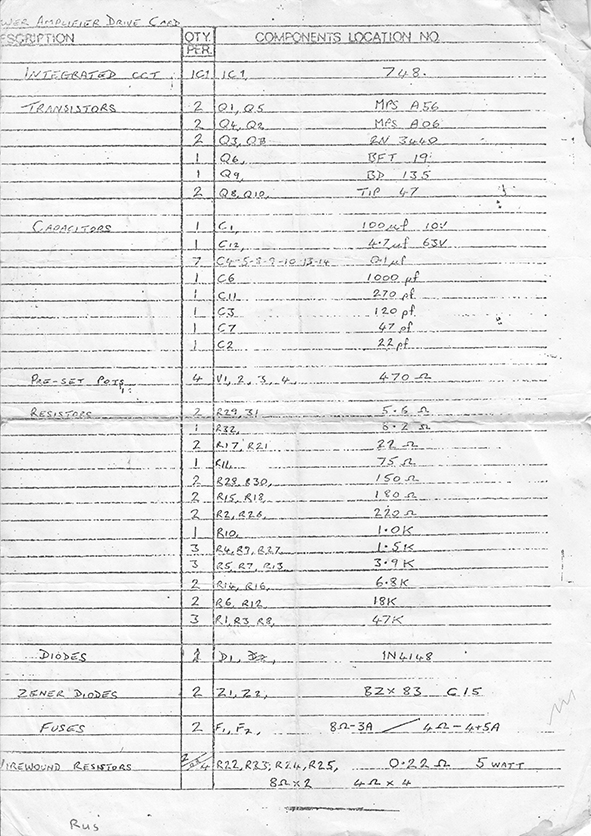 OWER AMPLIFIER DRIVE CARD
ESCRIPTION QTY PER. COMPONENTS LOCATION NO.
INTEGRATED CCT IC1 IC1, 748.
TRANSISTORS 2 Q1, Q5 MPS A56
2 Q4, Q2 MPS A06
2 Q3, 2N 3440
1 Q6, BFT 19
1 Q9, BD 135
2 Q8, Q10, TIP 47
CAPACITORS 1 C1, 100µf 10V
1 C12, 4.7µf 63V
7 C4-5-8-9-10-13-14 0.1µf
1 C6 1000pf
1 C11 270pf
1 C3 120pf
1 C7 47pf
1 C2 22pf
PRE-SET POTS, 4 V1, 2, 3, 4, 470Ω
RESISTORS 2 R29, 31 5.6Ω
1 R32, 8.2Ω
2 R17, R21 22Ω
1 R11, 75Ω
2 R28, R30, 150Ω
2 R15, R18, 180Ω
2 R2, R26, 220Ω
1 R10, 1.0K
3 R4, R9, R27, 1.5K
3 R5, R7, R13 3.9K
2 R14, R16, 6.8K
2 R6, R12 18K
3 R1, R3, R8, 47K
DIODES D1, 1N4148
ZENER DIODES 2 Z1, Z2, BZX 83 C15
FUSES 2 F1, F2, 8Ω-3A / 4Ω-4+5A
WIREWOUND RESISTORS 2 or 4 R22, R23, R24, R25, 0.22Ω 5 WATT
8Ω x 2 4Ω x 4
RUS